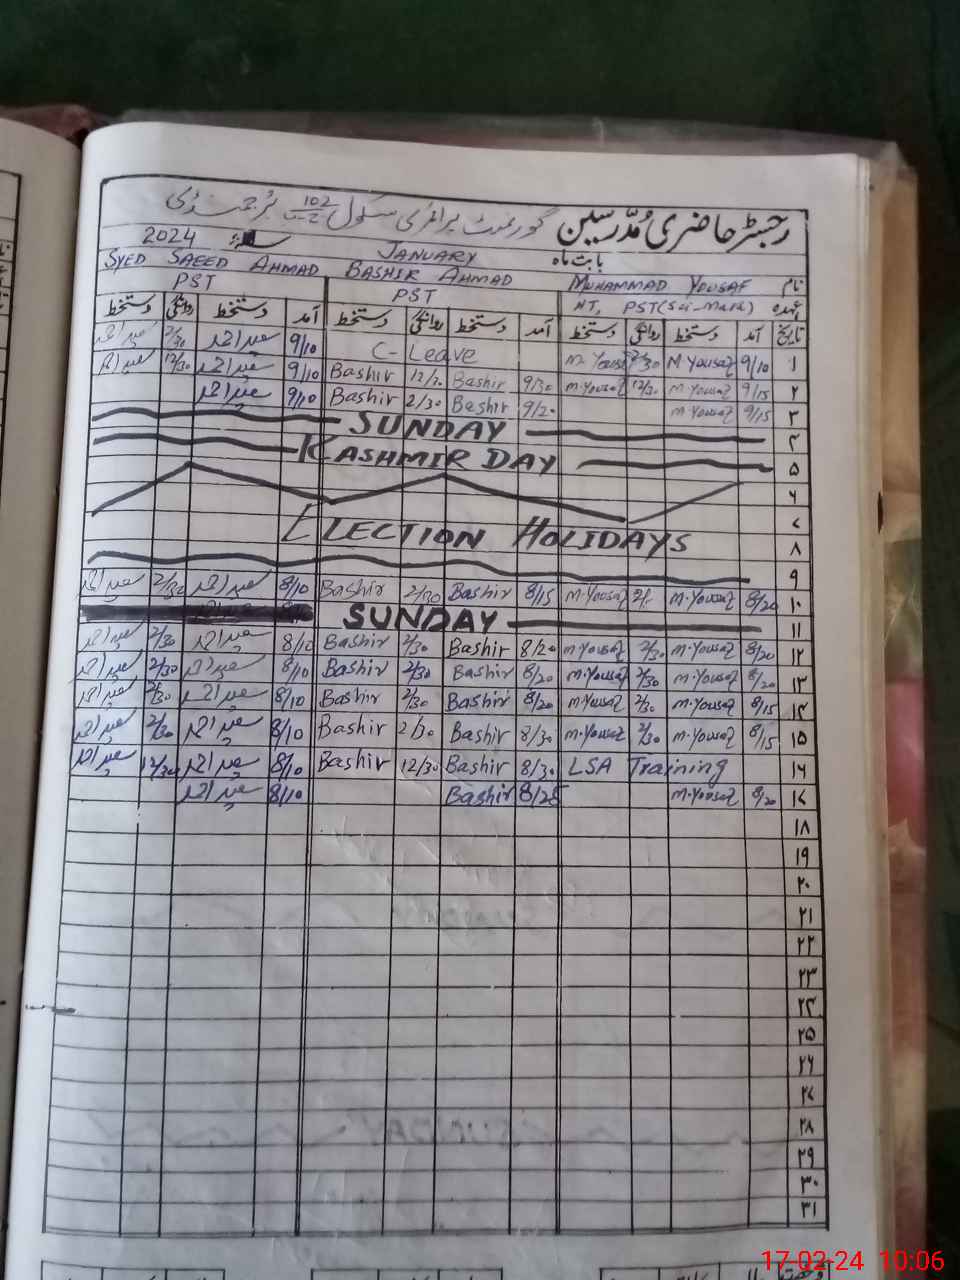 رجسٹر حاضری مُدرسین گورنمنٹ پرائمری سکول 102
بابت ماہ JANUARY 2024
نام MUHAMMAD YOUSAF BASHIR AHMAD SYED SAEED AHMAD
عہدہ HT, PST(Sci-Math) PST PST
تاریخ آمد دستخط روانگی دستخط آمد دستخط روانگی دستخط آمد دستخط روانگی دستخط
۱ 9/10 M Yousaf 2/30 M. Yousaf C- Leave 9/10 سعید احمد 2/30 سعید احمد
۲ 9/15 M Yousaf 12/30 M.Yousaf 9/30 Bashir 12/30 Bashir 9/10 سعید احمد 12/30 سعید احمد
۳ 9/15 M Yousaf 9/20 Bashir 2/30 Bashir 9/10 سعید احمد
۴ SUNDAY
۵ KASHMIR DAY
۶
۷ ELECTION HOLIDAYS
۸
۹
۱۰ 8/20 M.Yousaf M.Yousaf 8/15 Bashir 2/30 Bashir 8/10 سعید احمد 2/30 سعید احمد
۱۱ SUNDAY
۱۲ 8/20 M.Yousaf 2/30 M.Yousaf 8/20 Bashir 2/30 Bashir 8/10 سعید احمد 2/30 سعید احمد
۱۳ 8/20 M.Yousaf 2/30 M.Yousaf 8/20 Bashir 2/30 Bashir 8/10 سعید احمد 2/30 سعید احمد
۱۴ 8/15 M.Yousaf 2/30 M.Yousaf 8/20 Bashir 2/30 Bashir 8/10 سعید احمد 2/30 سعید احمد
۱۵ 8/15 M.Yousaf 2/30 M.Yousaf 8/30 Bashir 2/30 Bashir 8/10 سعید احمد 2/30 سعید احمد
۱۶ LSA Training 8/30 Bashir 12/30 Bashir 8/10 سعید احمد 12/30 سعید احمد
۱۷ 8/20 M.Yousaf 8/25 Bashir 8/10 سعید احمد
۱۸
۱۹
۲۰
۲۱
۲۲
۲۳
۲۴
۲۵
۲۶
۲۷
۲۸
۲۹
۳۰
۳۱
17-02-24 10:06